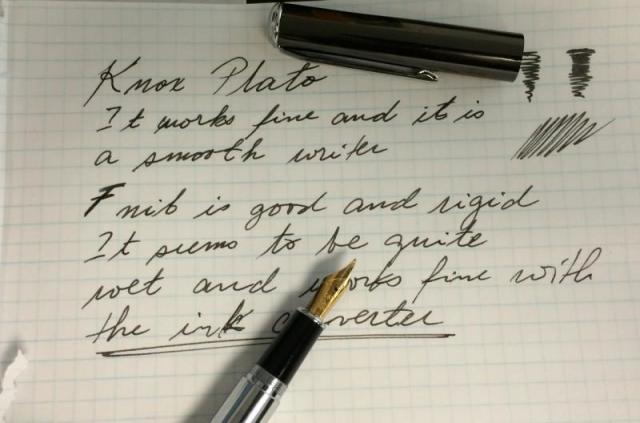 Knox Plato
It works fine and it is
a smooth writer
F nib is good and rigid
It seems to be quite
wet and works fine with
the ink converter